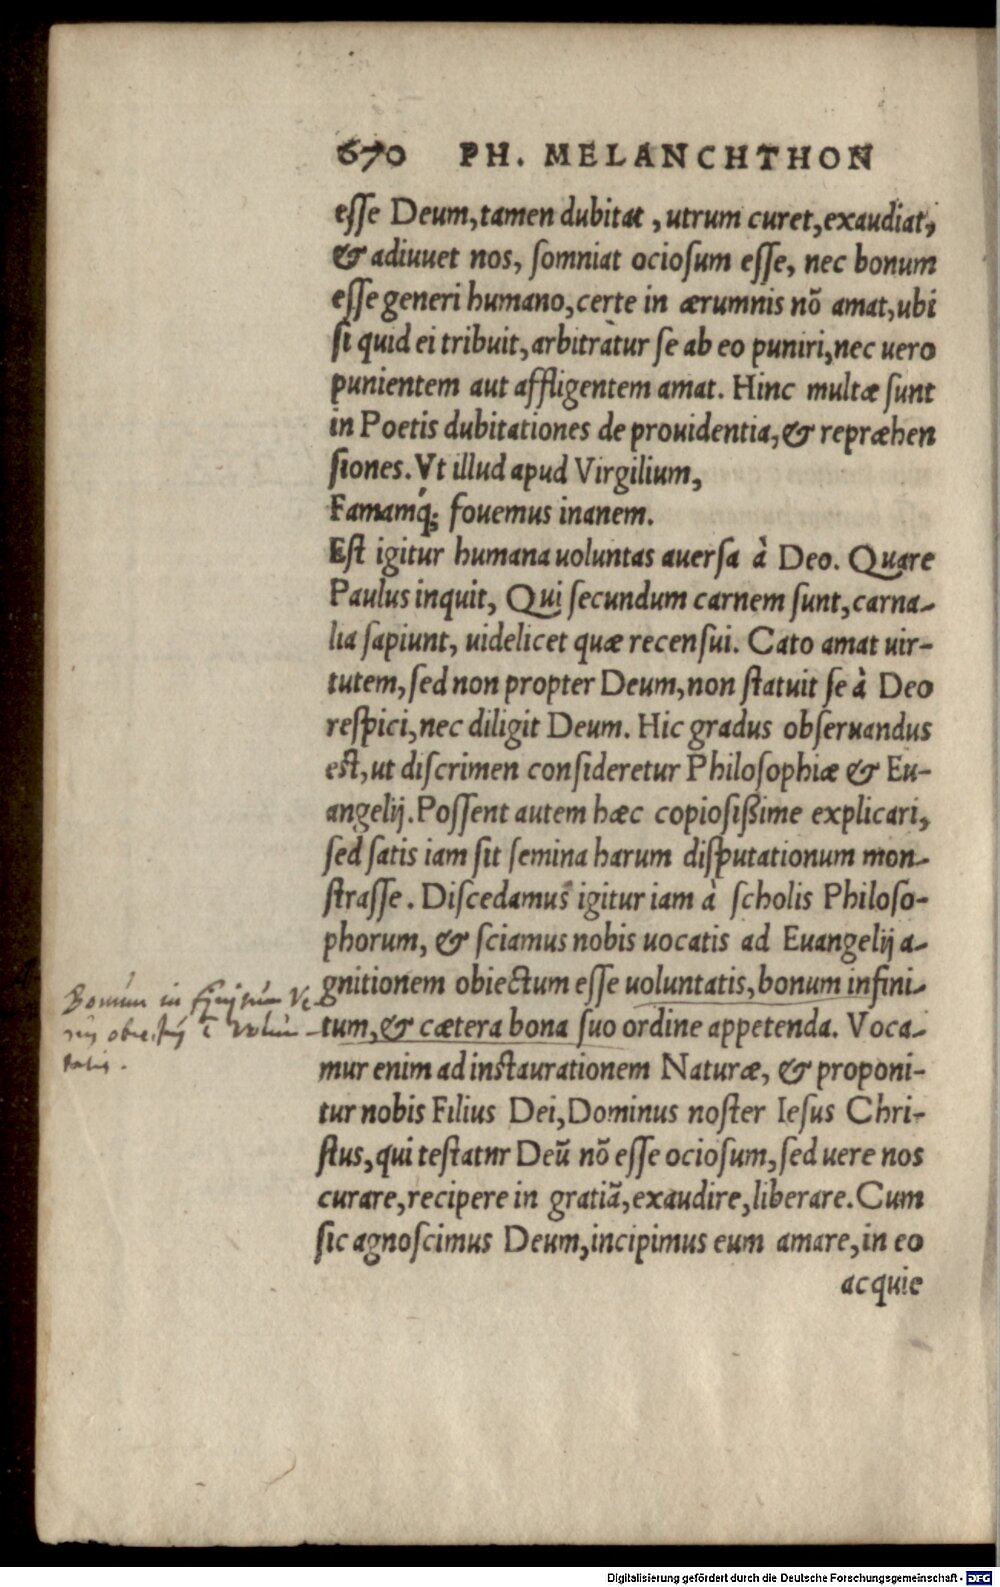 670 PH. MELANCHTHON
esse Deum, tamen dubitat, utrum curet, exaudiat,
& adiuuet nos, somniat ociosum esse, nec bonum
esse generi humano, certe in ærumnis nõ amat, ubi
si quid ei tribuit, arbitràtur se ab eo puniri, nec uero
punientem aut affligentem amat. Hinc multæ sunt
in Poetis dubitationes de prouidentia, & repræhen
siones. Vt illud apud Virgilium,
Famamq́; fouemus inanem.
Est igitur humana uoluntas auersa à Deo. Quare
Paulus inquit, Qui secundum carnem sunt, carna-
lia sapiunt, uidelicet quæ recensui. Cato amat uir-
tutem, sed non propter Deum, non statuit se à Deo
respici, nec diligit Deum. Hic gradus obseruandus
est, ut discrimen consideretur Philosophiæ & Eu-
angelij. Possent autem hæc copiosißime explicari,
sed satis iam sit semina harum disputationum mon-
strasse. Discedamus igitur iam à scholis Philoso-
phorum, & sciamus nobis uocatis ad Euangelij a-
gnitionem obiectum esse uoluntatis, bonum infini-
tum, & cætera bona suo ordine appetenda. Voca-
mur enim ad instaurationem Naturæ, & proponi-
tur nobis Filius Dei, Dominus noster Iesus Chri-
stus, qui testatnr Deũ nõ esse ociosum, sed uere nos
curare, recipere in gratiã, exaudire, liberare. Cum
sic agnoscimus Deum, incipimus eum amare, in eo
acquie
Bonum in
tatis.
Digitalisierung gefördert durch die Deutsche Forschungsgemeinschaft - DFG